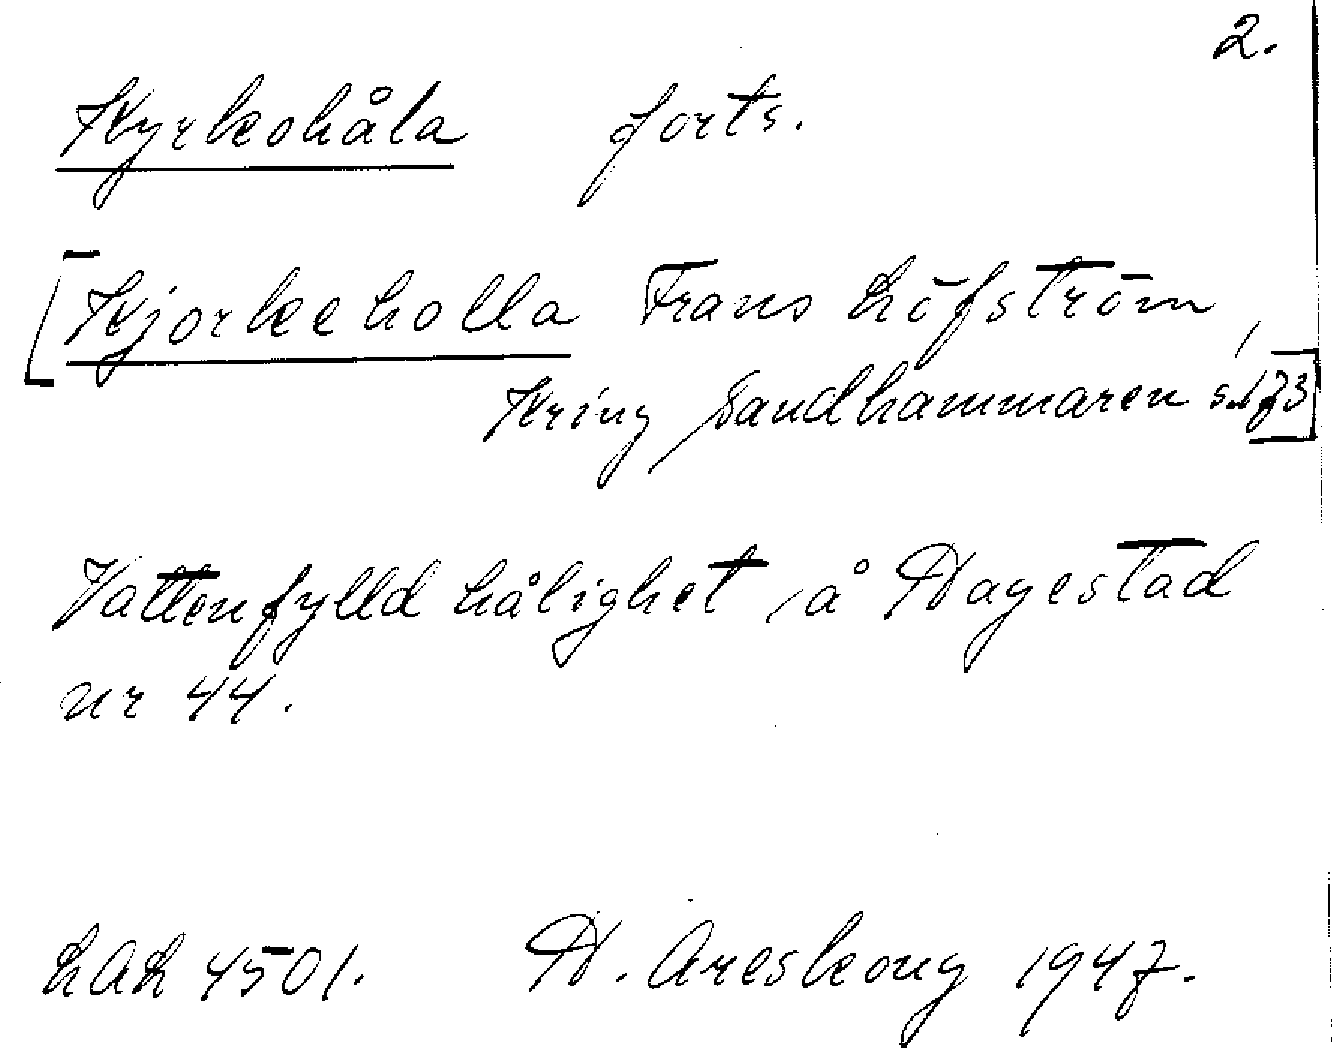 2.
Kyrkohåla forts.
[Kjorkeholla Frans Löfström,
Kring Sandhammaren s. 173]
Vattenfylld hålighet, å Hagestad
nr 44.
LAL 4501. H. Areskoug 1947.